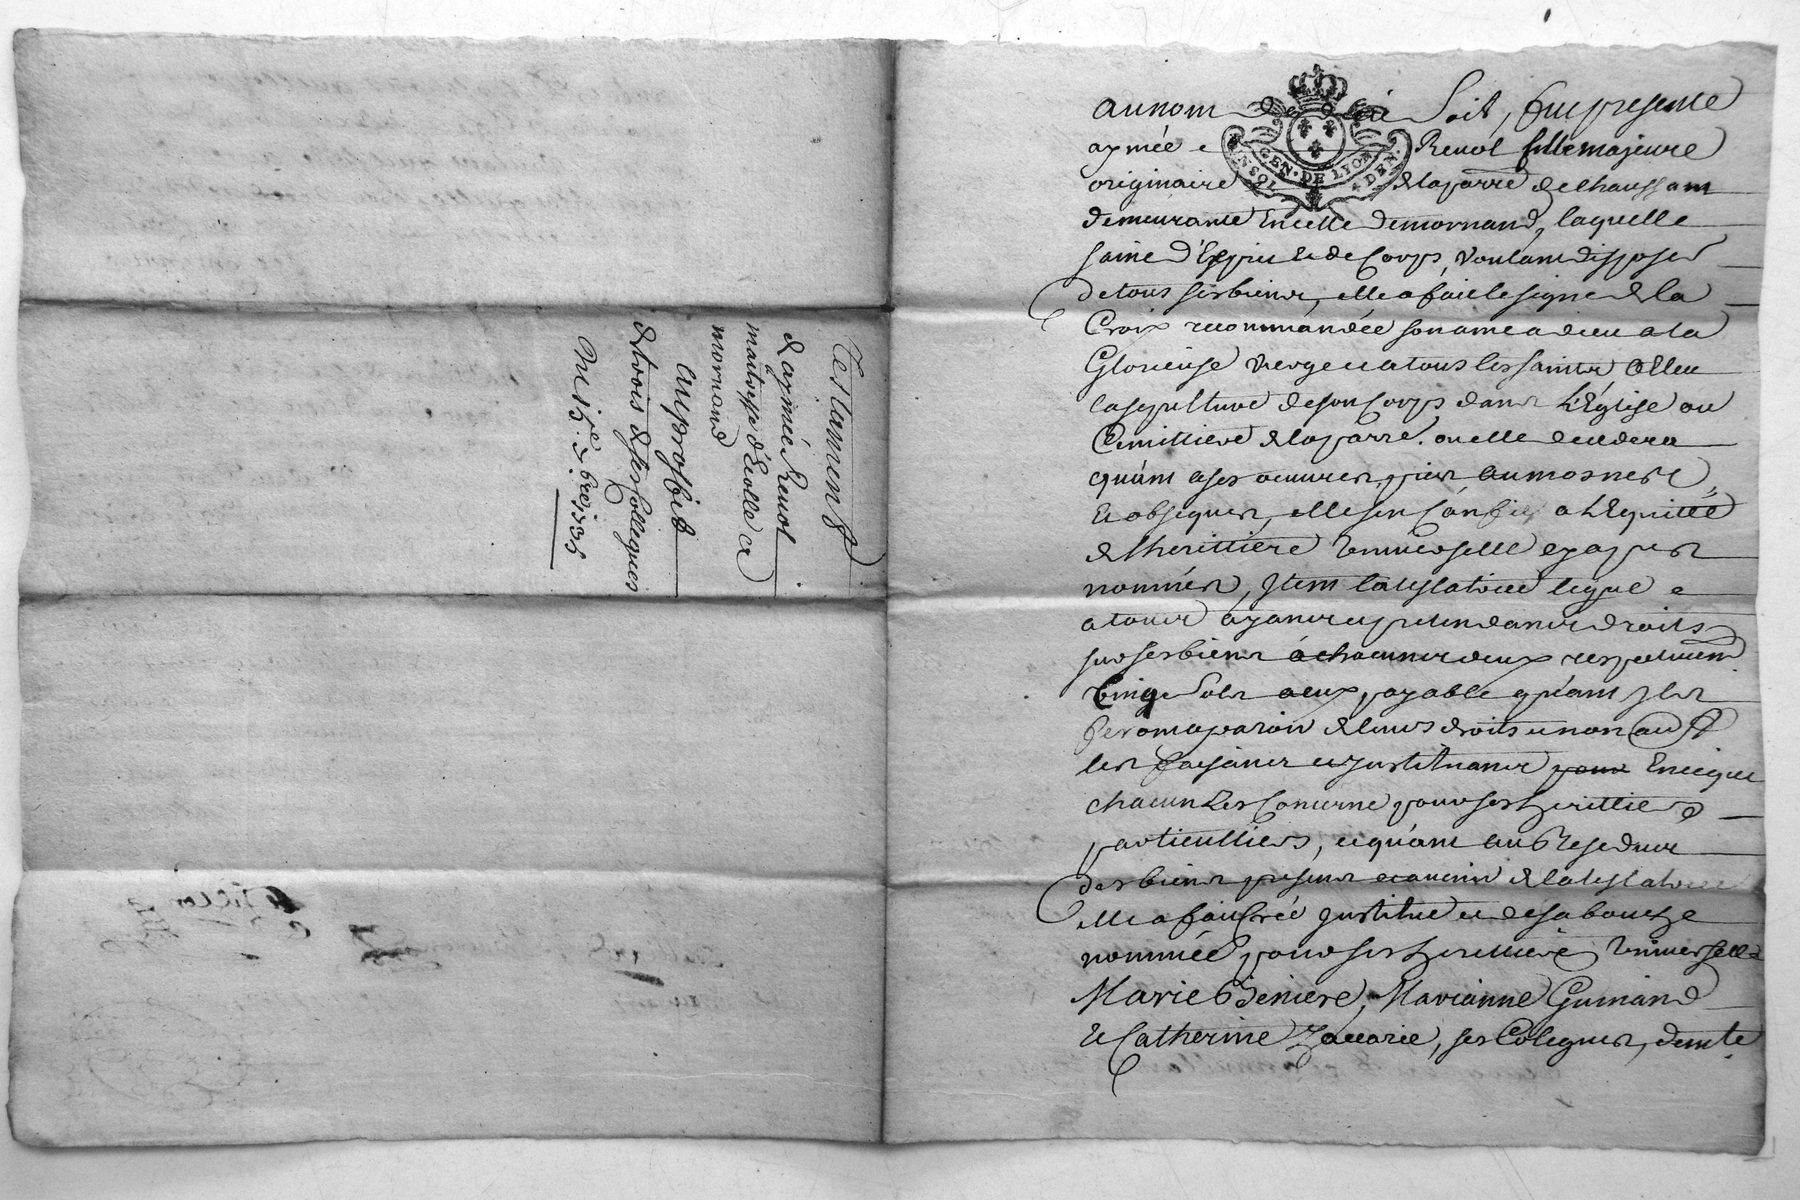 Testament
d'aymée Revol
maitresse d'Ecolle a
mornand
au proffit
de trois de ses Collegues
Du 15e 7bre 1735
au nom de dieu Soit, fut presente
aymée Revol fille majeure
originaire de la parre de Chaussam
demeurante En celle de mornand, laquelle
saine d'Esprit et de Corps, voulant disposer
de tous ses biens, elle a fait le signe de la
Croix recommandée son ame a dieu a la
Glorieuse vierge et a tous les saints Elleu
la sepulture de son Corps dans l'Eglise ou
Cimittiere de la parre. ou elle decedera
quant a ses oeuvres pies aumosnes
et obseques, elle s'en Confie a l'Equitté
de l'herittiere universelle cy apres
nommées, Item la testatrice legue
a tous ayants et pretendants droits
sur ses biens a chacuns d'eux respectivem
vingt sols a eux payable quant Ils
feront aparoir de leurs droits et non
les faisants et Instituants pour En ce que
chacun Les Concerne pour ses herittiers
particulliers, et quant au Residue
des biens presents et avenir de la testatrice
elle a fait Créé Institue et de sa bouche
nommée pour ses herittiere universelle
Marie Beniere, Marianne Guinand
et Catherine Zacarie, ses Colegues, demte
GEN. DE LYON